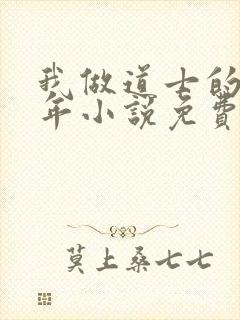 我做道士的
年小説免費
莫上桑七七